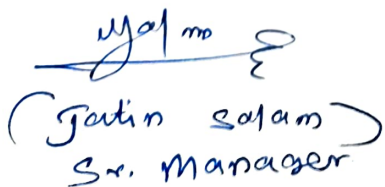 (Jatin Salam)
Sr. Manager